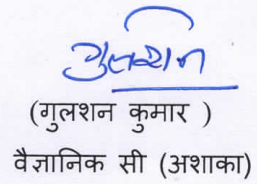 गुलशन
(गुलशन कुमार )
वैज्ञानिक सी (अशाका)